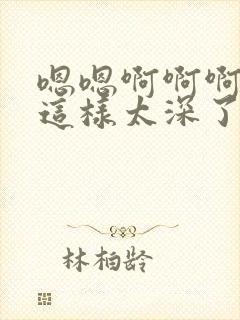 嗯嗯啊啊啊
這樣太深了
林柏龄